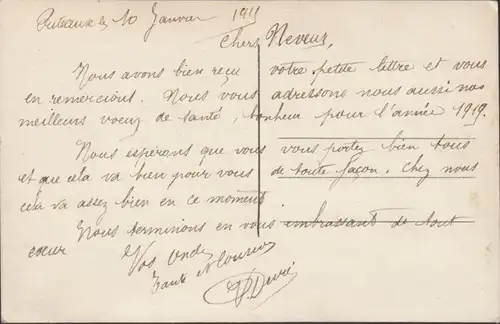 Puteaux le 10 Janvier 1919
Chers Neveux,
Nous avons bien reçu votre petite lettre et vous
en remercions. Nous vous adressons nous aussi nos
meilleurs voeux de santé, bonheur pour l'année 1919.
Nous espérons que vous vous portez bien tous
et que cela va bien pour vous de toute façon. Chez nous
cela va assez bien en ce moment
Nous terminons en vous embrassant de tout
coeur
Vos Oncle
Tante et Cousin